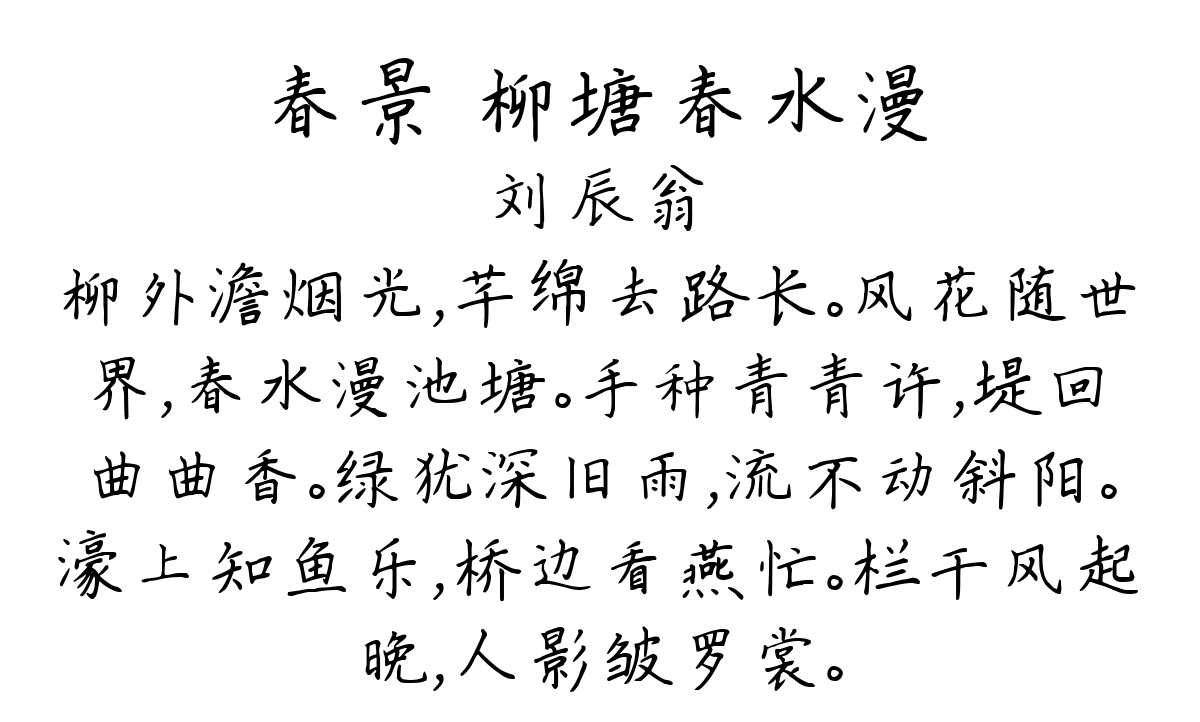 春景 柳塘春水漫
刘辰翁
柳外澹烟光,芊绵去路长。风花随世
界,春水漫池塘。手种青青许,堤回
曲曲香。绿犹深旧雨,流不动斜阳。
濠上知鱼乐,桥边看燕忙。栏干风起
晚,人影皱罗裳。